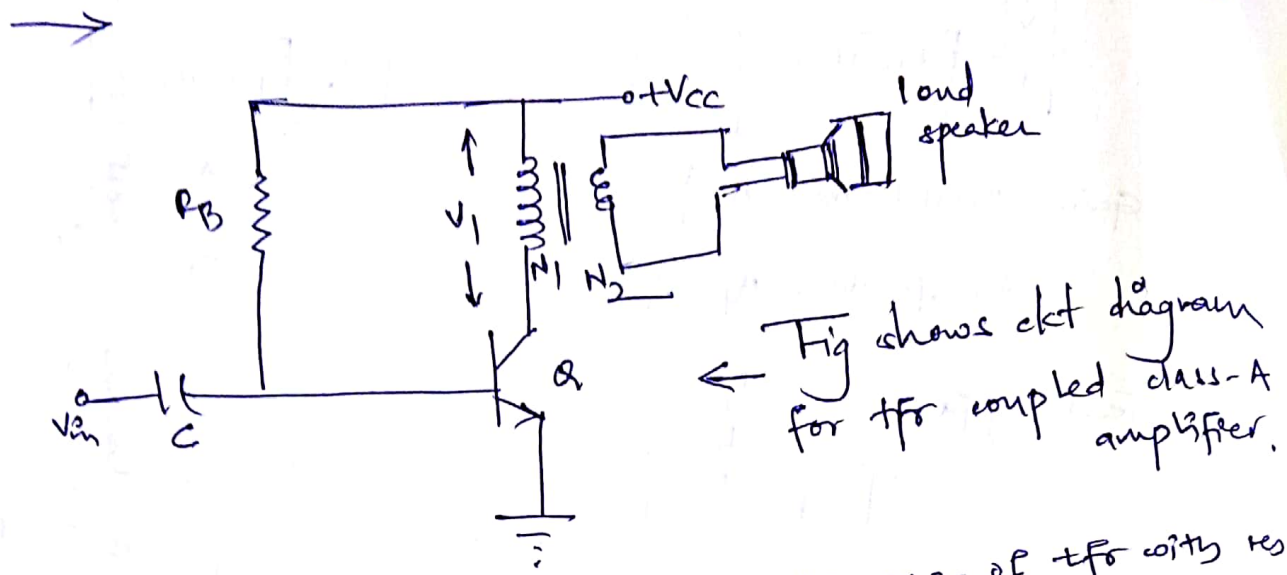 +Vcc
loud
speaker
RB
V1
N1 N2
Fig shows ckt diagram
for tfr coupled class-A
amplifier.
Q
Vin
C
of tfr with res